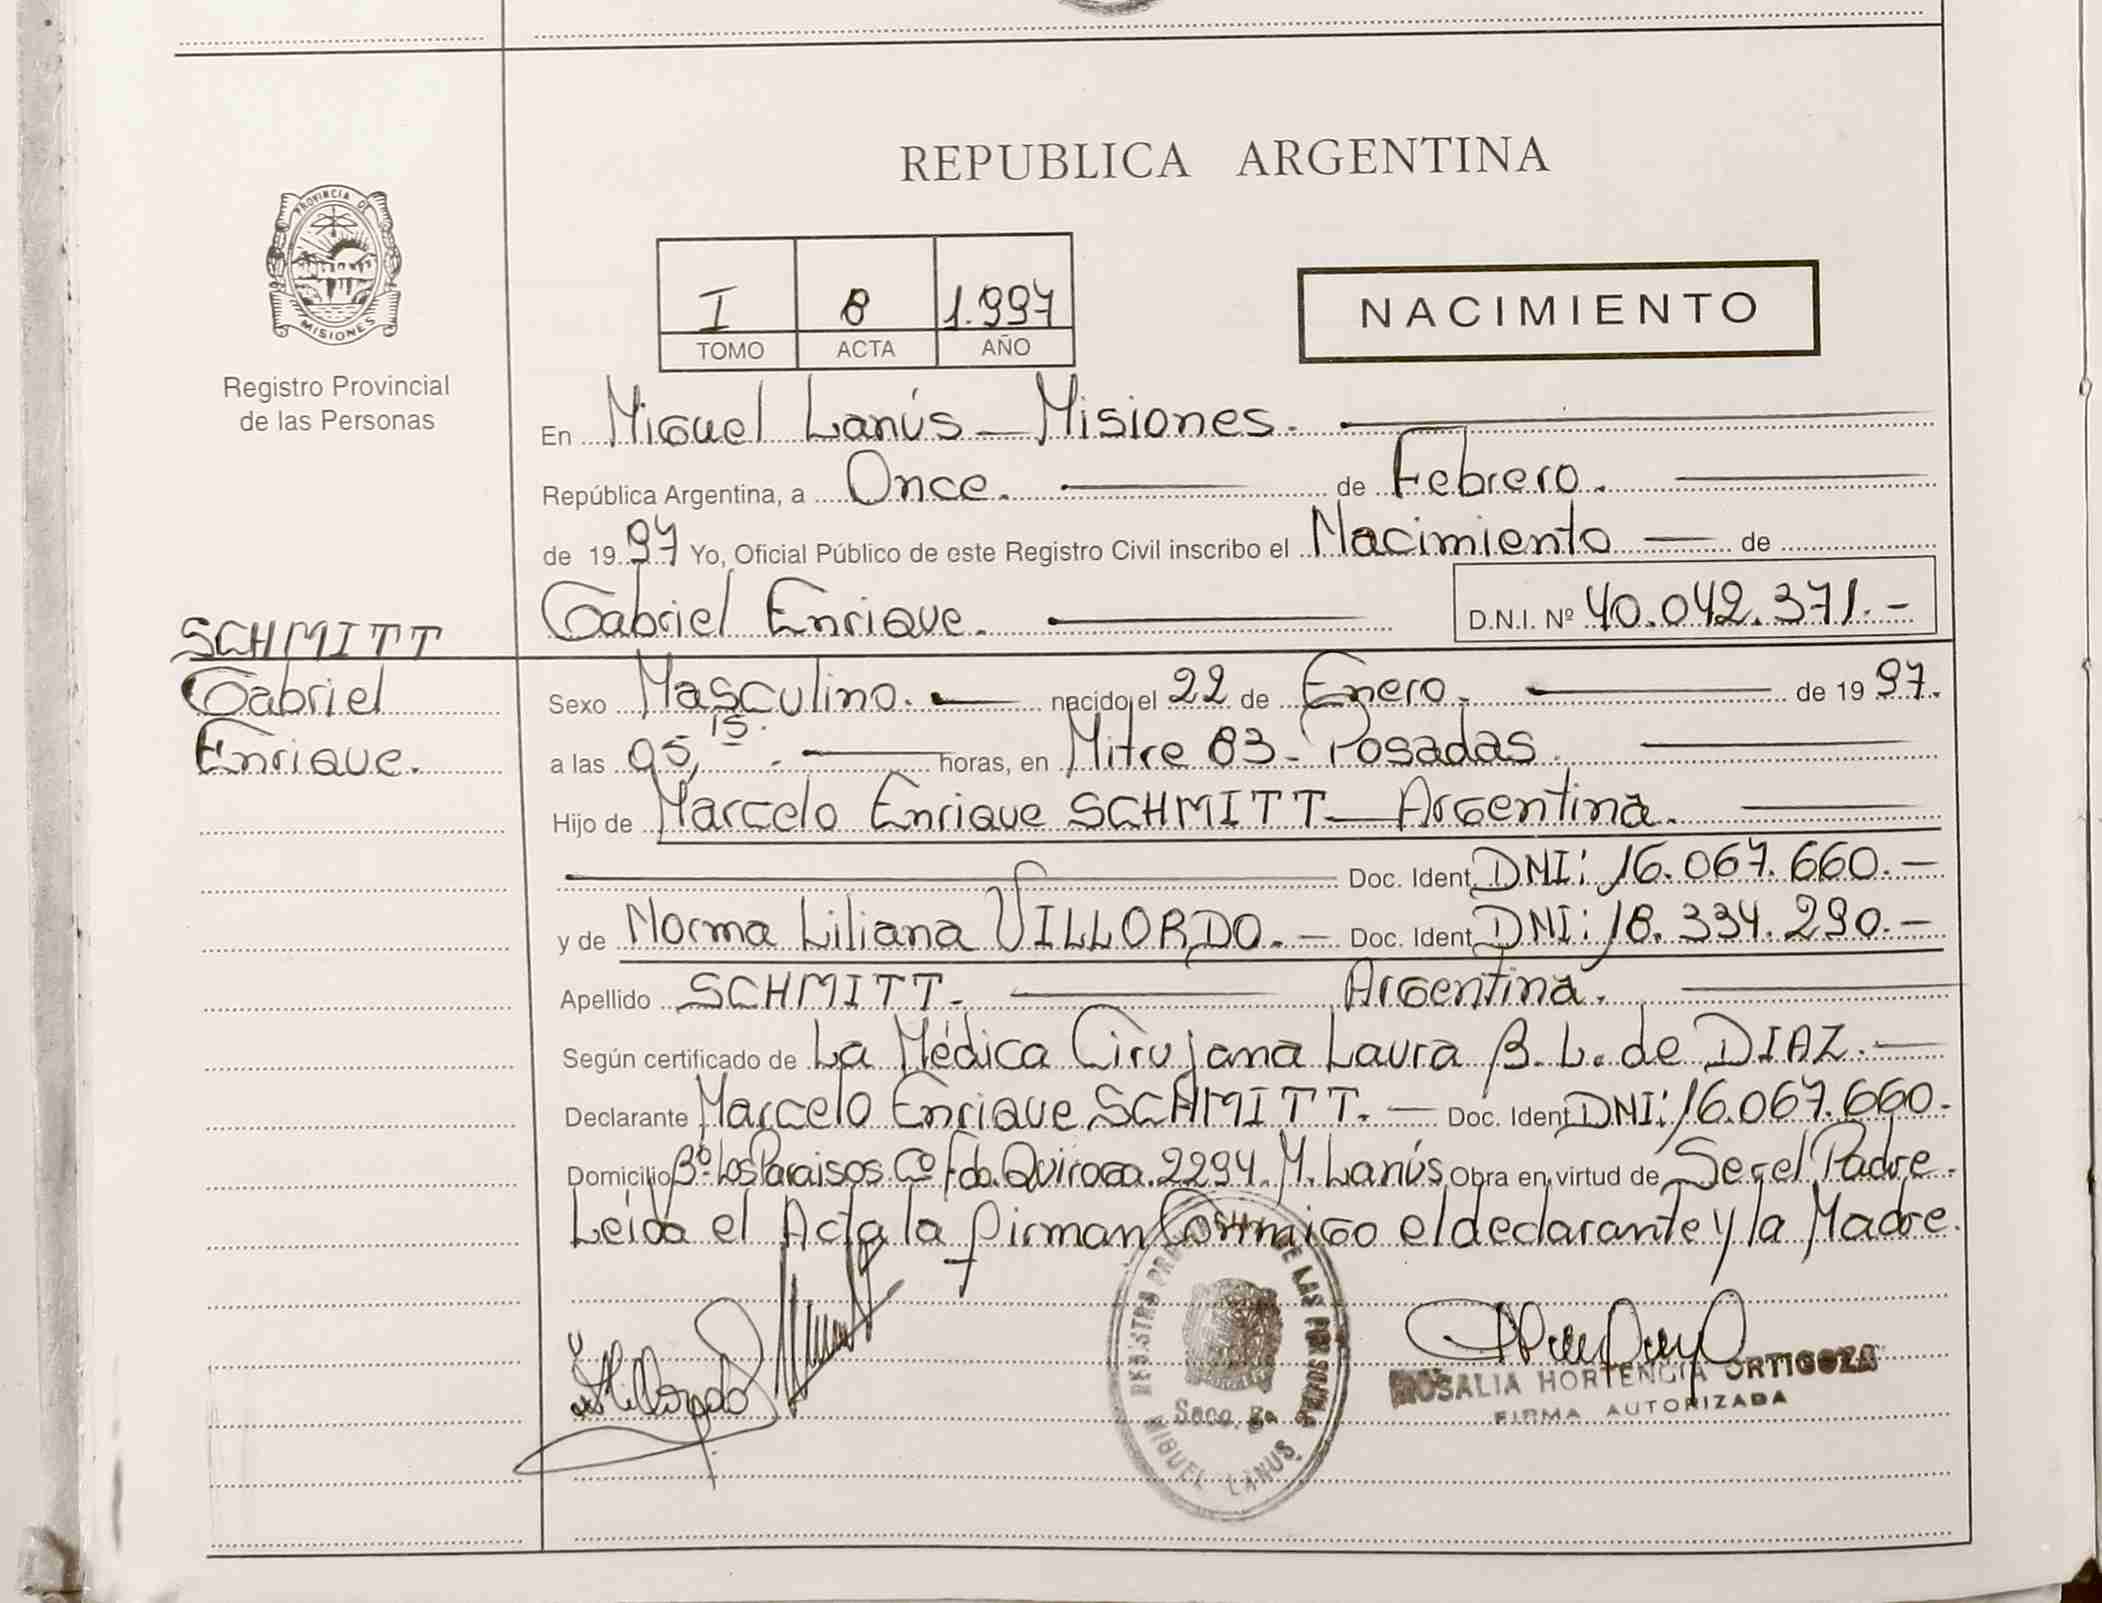 PROVINCIA DE
MISIONES
Registro Provincial
de las Personas
SCHMITT
Gabriel
Enrique.
REPUBLICA ARGENTINA
I 8 1.997
TOMO ACTA AÑO
NACIMIENTO
En Miguel Lanús - Misiones.
República Argentina, a Once. de Febrero.
de 19 97 Yo, Oficial Público de este Registro Civil inscribo el Nacimiento de
Gabriel Enrique. D.N.I. Nº 40.042.371.-
Sexo Masculino. nacido el 22 de Enero. de 19 97.
a las 05,15. horas, en Mitre 83 - Posadas.
Hijo de Marcelo Enrique SCHMITT - Argentina.
Doc. Ident. DNI: 16.067.660.-
y de Norma Liliana VILLORDO. - Doc. Ident. DNI: 18.334.290.-
Apellido SCHMITT. Argentina.
Según certificado de La Médica Cirujana Laura B. L. de DIAZ. -
Declarante Marcelo Enrique SCHMITT. - Doc. Ident. DNI: 16.067.660.
Domicilio Bº. Los Paraisos. Cº Fdo. Quiroga. 2294. M. Lanús Obra en virtud de Ser el Padre.
Leída el Acta la firman Conmigo el declarante y la Madre.
DE LAS PERSONAS
Secc. 5a
MIGUEL LANUS
ROSALIA HORTENCIA ORTIGOZA
FIRMA AUTORIZADA